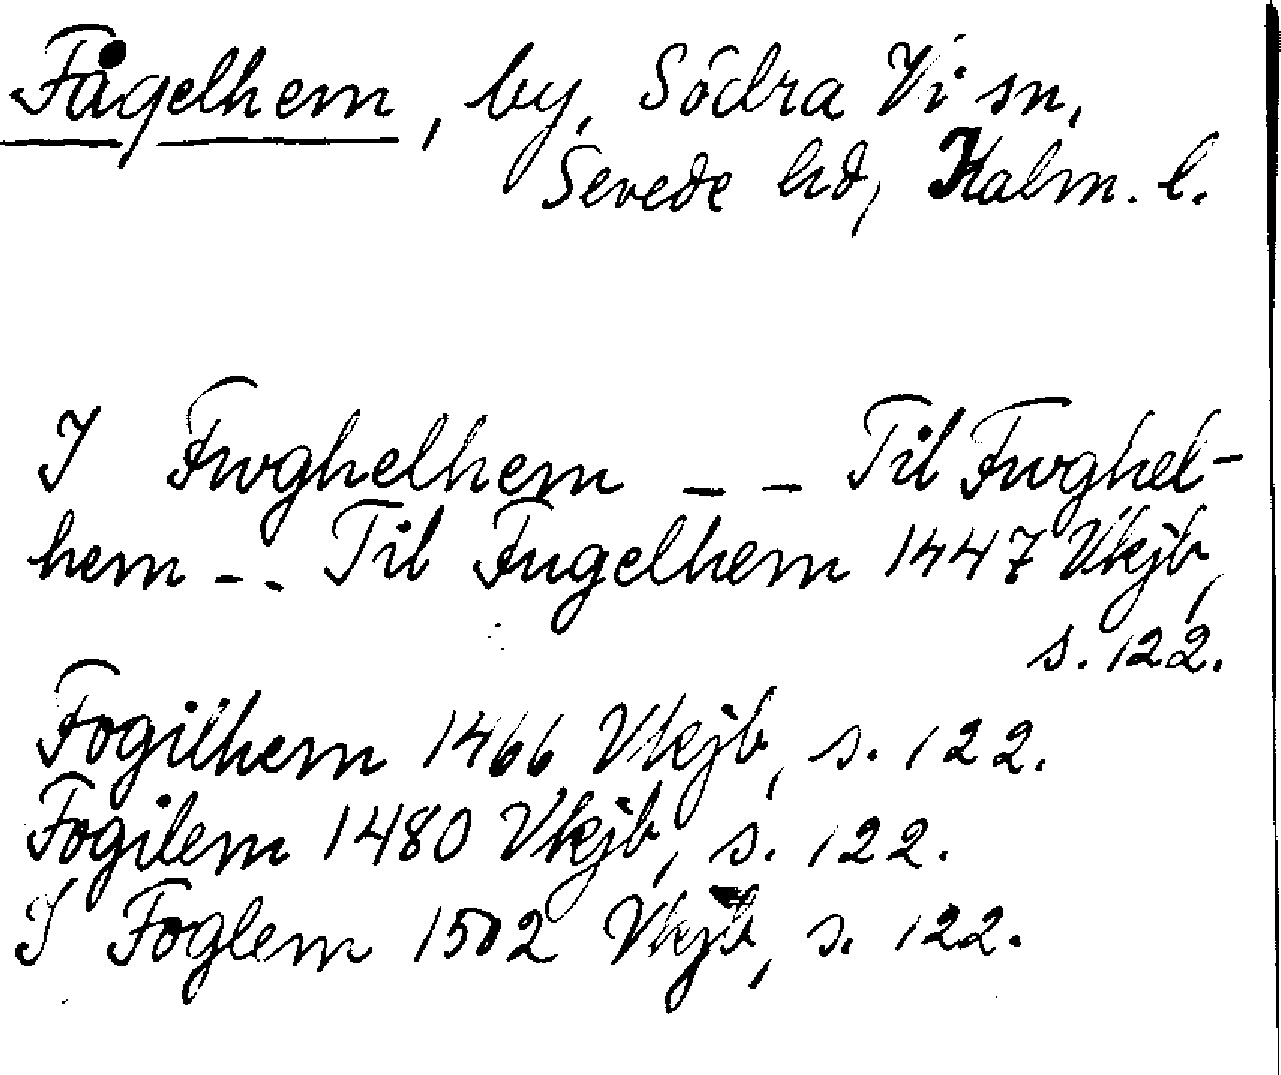 Fågelhem, by, Södra Vi sn,
Sevede hd, Kalm. l.
I Fwghelhem _ _ Til Fwghel-
hem _ _ Til Fugelhem 1447 Vkjb,
s. 122.
Fogilhem 1466 Vkjb, s. 122.
Fogilem 1480 Vkjb, s. 122.
I Foglem 1502 Vkjb, s. 122.